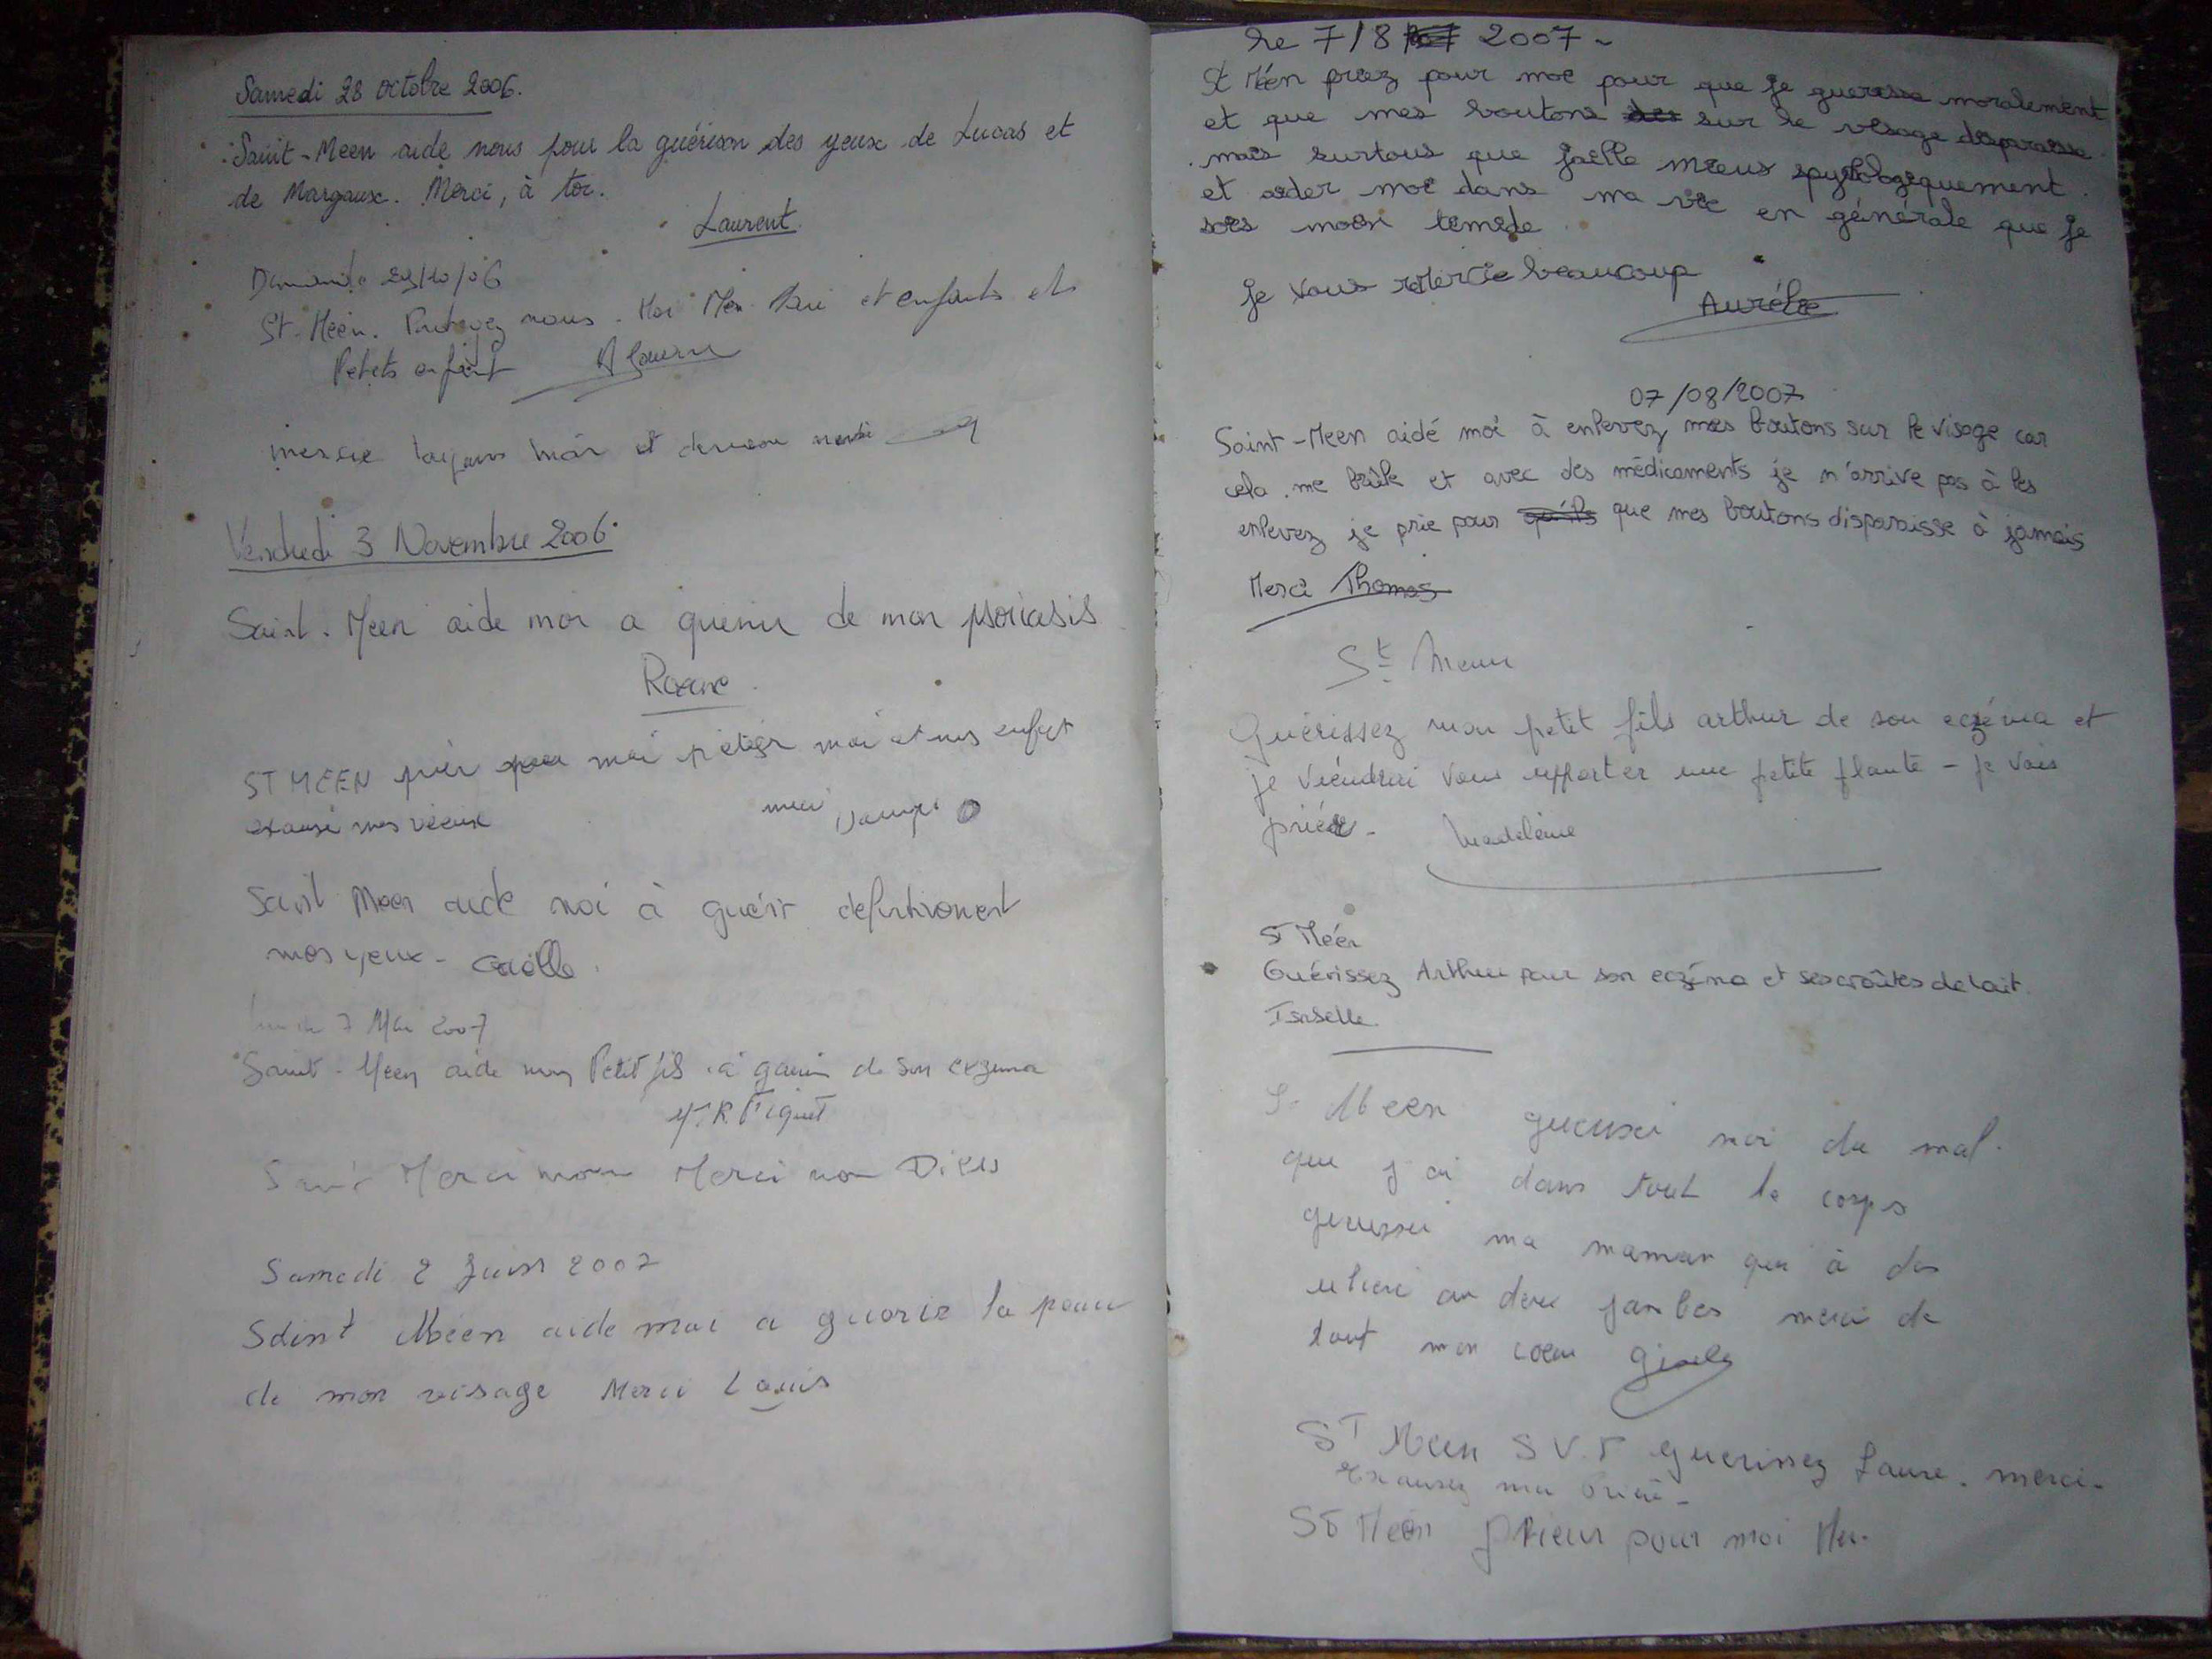 Samedi 28 Octobre 2006.
Saint-Meen aide nous pour la guérison des yeux de Lucas et
de Margaux. Merci, à toi.
Laurent.
29/10/06
St-Méen. Protegez nous. Moi Mon Mari et enfants et
Petits enfant
merci
Vendredi 3 Novembre 2006.
Saint. Meen aide moi a guerir de mon psoriasis
ST MEEN moi moi et mes enfant
mes veeux merci
Saint Meen aide moi à guérir definitivement
mes yeux - Gaëlle.
7 Mai 2007
Saint-Meen aide mon Petit fils à de son exzema
Merci mon Merci mon Dieu
Samedi 2 Juin 2007
Saint Méen aide moi a guorir la peau
de mon visage Merci Louis
Le 7/8 2007-
St Méen priez pour moi pour que je guerisse moralement
et que mes boutons sur le visage disparaisse.
mais surtous que j'aille mieus spycologiquement.
et aider moi dans ma vie en générale que je
sois moin timide
je vous remercie beaucoup
Aurélie
07/08/2007
Saint-Meen aidé moi à enlevez mes boutons sur le visage car
cela me brûle et avec des médicaments je n'arrive pas à les
enlevez je prie pour qu'ils que mes boutons disparaisse à jamais
Merci Thomas
St Meen
Guérissez mon petit fils arthur de son eczéma et
je viendrai vous apporter une petite plante - je vais
prier - Madeleine
St Méen
Guérissez Arthur pour son eczéma et ses croûtes de lait
Isabelle
St Meen moi du mal
que j ai dans tout le corps
ma maman qui à des
au deux jambes merci de
tout mon coeur Gisele
ST Meen S V.P guerissez Laure. merci.
Exaucez ma
St Meen prieur pour moi